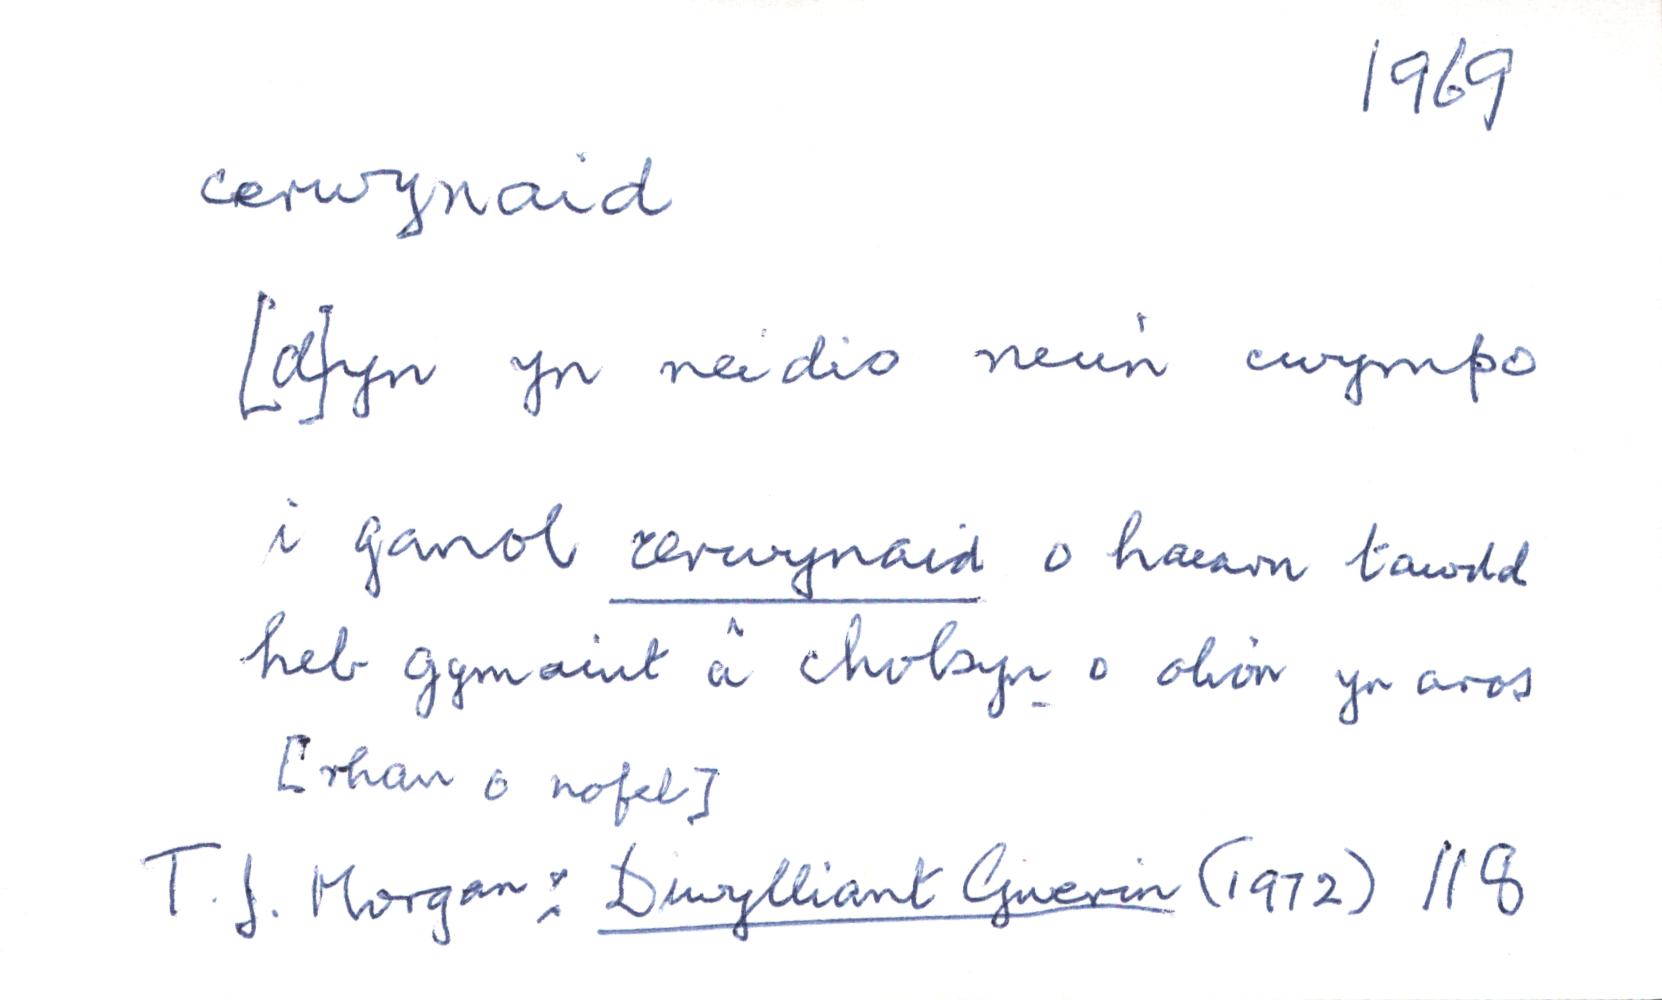 1969
cerwynaid
[d]yn yn neidio neu'n cwympo
i ganol cerwynaid o haearn tawdd
heb gymaint â cholsyn o olion yn aros
[rhan o nofel]
T. J. Morgan: Diwylliant Gwerin (1972) 118